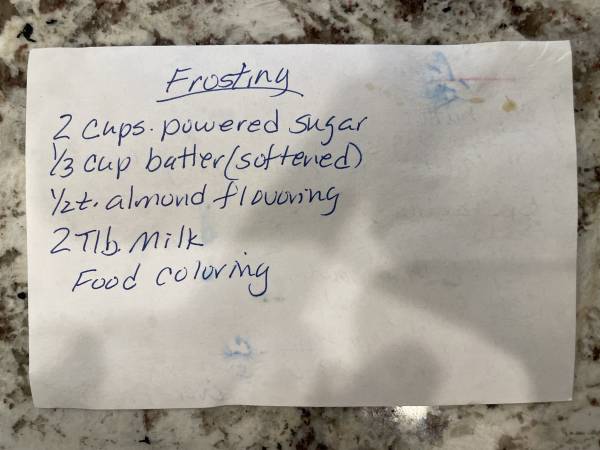 Frosting
2 cups. powered sugar
1/3 cup batter (softened)
1/2 t. almond flovoring
2 Tlb. Milk
Food coloring